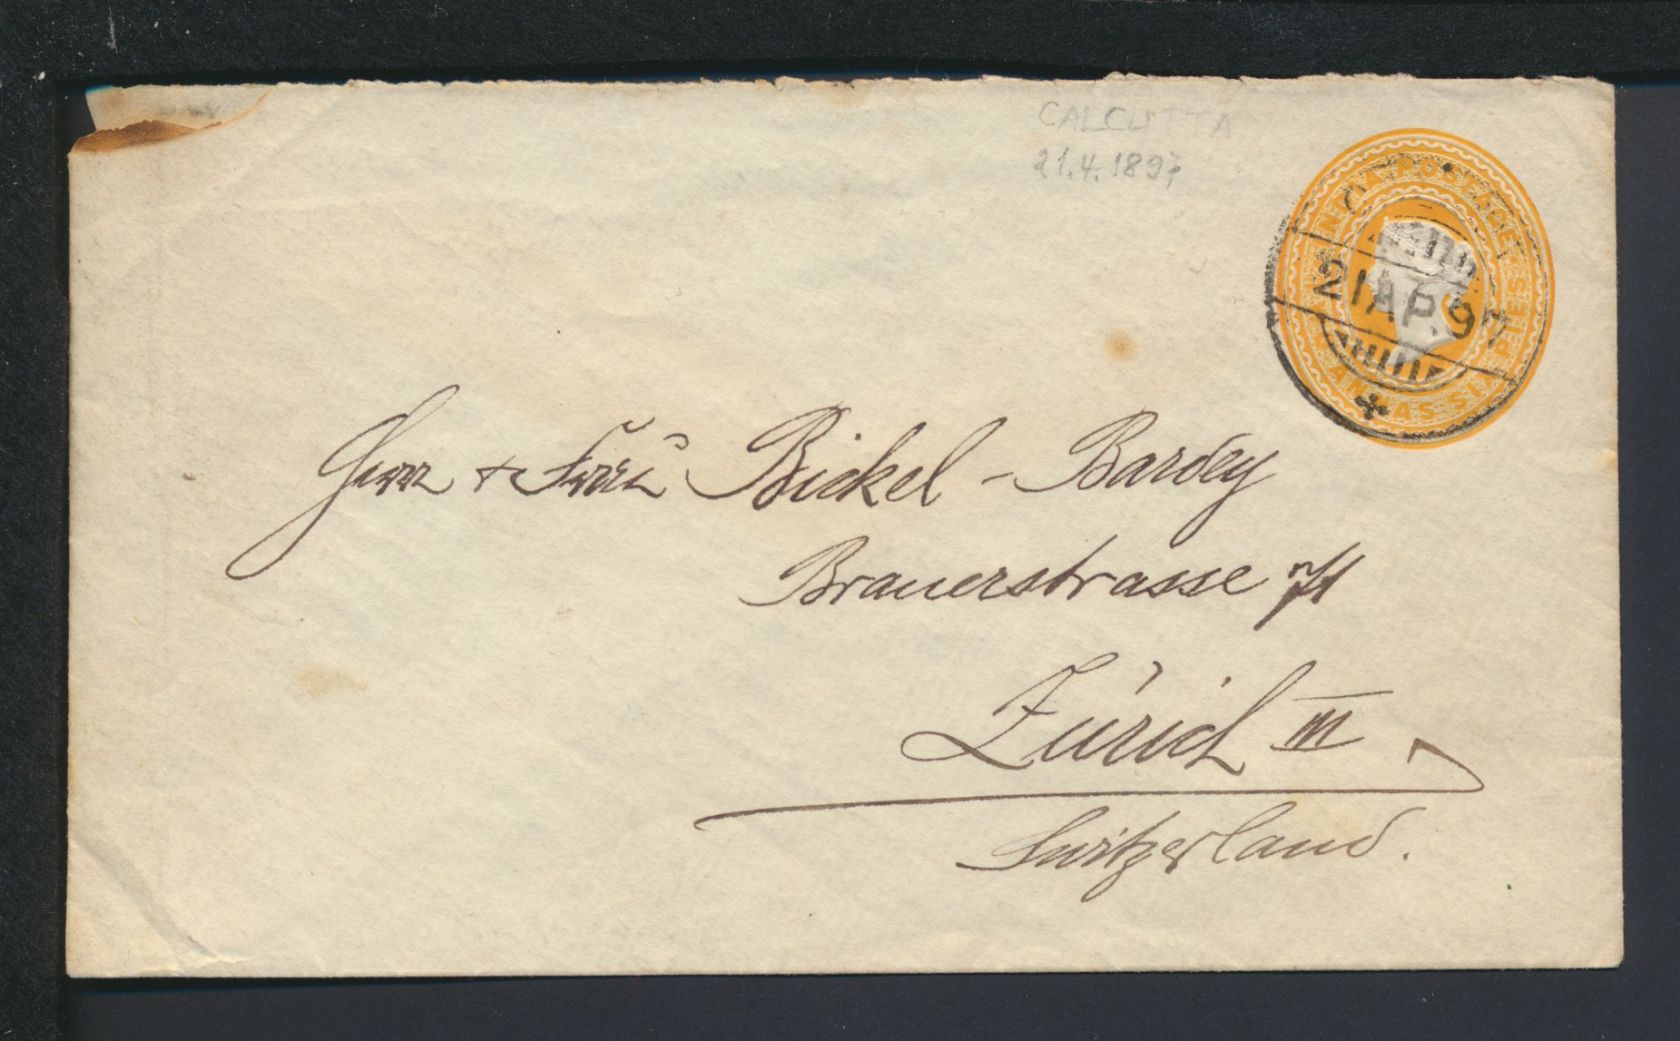 CALCUTTA
21.4.1897
INDIA POSTAGE
ANNAS SIX PIES
21 AP. 97
Herr & Frau Bickel - Bardey
Brauerstrasse 71
Zürich III
Switzerland.